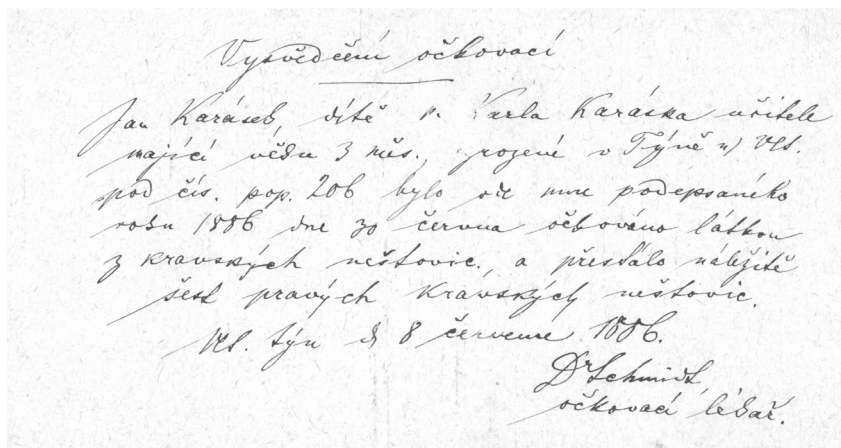 Vysvědčení očkovací
Jan Karásek, dítě p. Karla Karáska učitele
mající věku 3 měs., zrozené v Týně n/ Vlt.
pod čís. pop. 206 bylo ode mne podepsaného
roku 1886 dne 30 června očkováno látkou
z kravských neštovic, a přestálo náležitě
šest pravých kravských neštovic.
Vlt. Týn d 8 července 1886.
Dr Schmidt,
očkovací lékař.